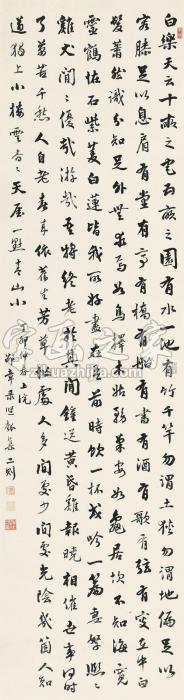 白樂天云十畝之宅五畝之園有水一池有竹千竿勿謂土狹勿謂地偏足以
容膝足以息肩有堂有亭有橋有船有書有酒有歌有弦有叟立中白
髮蕭然識分知足外無求焉如鳥擇木姑務巢安如龜居坎不知海寬
靈鶴怪石紫菱白蓮皆我所好盡在我前時飲一杯或吟一篇妻孥熙熙
雞犬閒閒優哉游哉吾將終老於其間鐘送黃昏雞報曉相催世事何時
了萬苦千愁人自老春來依舊生芳草忙處人多閒處少閒處光陰幾箇人知
道獨上小樓雲杳杳天涯一點青山小
仲春上浣
二則